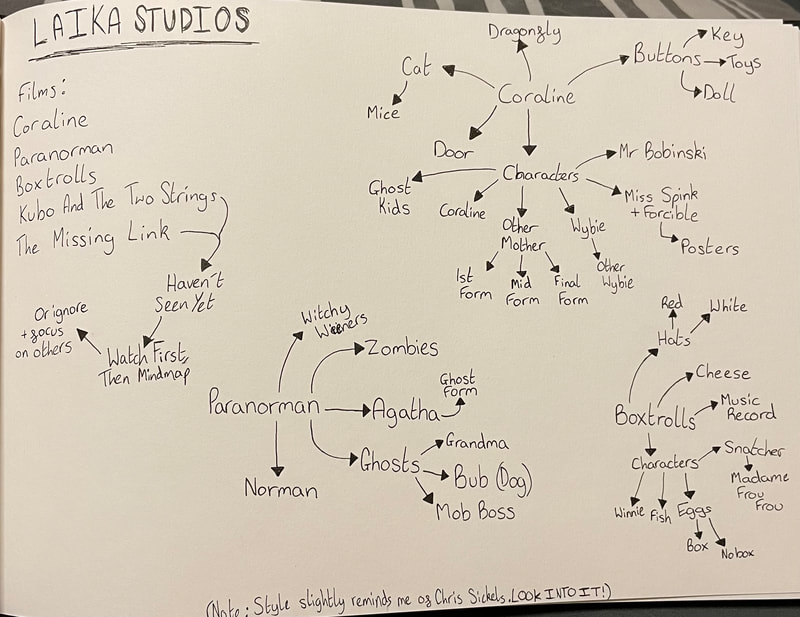 LAIKA STUDIOS
Films:
Coraline
Paranorman
Boxtrolls
Kubo And The Two Strings
The Missing Link
Haven't
Seen Yet
Watch First,
Then Mindmap
Or ignore
+ focus
on others
Coraline
Dragonfly
Cat
Mice
Door
Buttons
Key
Toys
Doll
Characters
Ghost
Kids
Coraline
Other
Mother
1st
Form
Mid
Form
Final
Form
Wybie
Other
Wybie
Mr Bobinski
Miss Spink
+ Forcible
Posters
Paranorman
Witchy
Wieners
Zombies
Agatha
Ghost
Form
Ghosts
Grandma
Bub (Dog)
Mob Boss
Norman
Boxtrolls
Hats
Red
White
Cheese
Music
Record
Characters
Snatcher
Madame
Frou
Frou
Winnie
Fish
Eggs
Box
No box
(Note: Style slightly reminds me of Chris Sickels. LOOK INTO IT!)